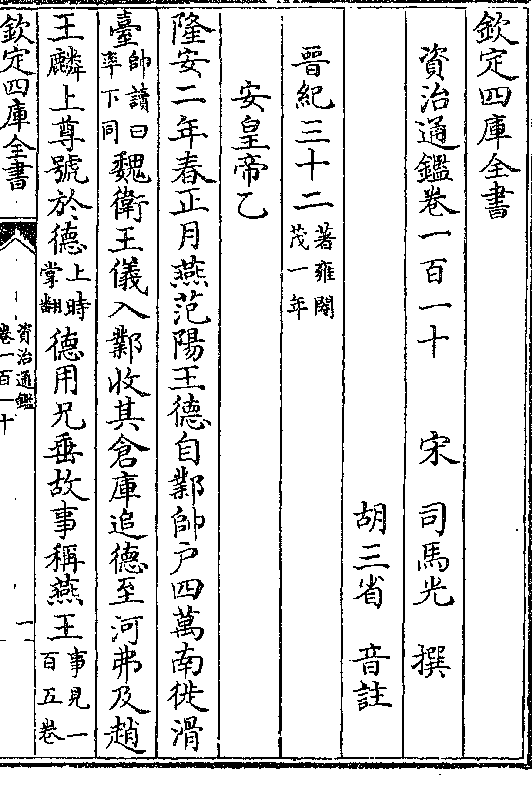 欽定四庫全書
資治通鑑卷一百一十 宋 司馬光 撰
胡三省 音註
晉紀三十二 著雍閹茂一年
安皇帝乙
隆安二年春正月燕范陽王德自鄴帥户四萬南徙滑
臺帥讀曰率下同魏衛王儀入鄴收其倉庫追德至河弗及趙
王麟上尊號於德上時掌翻德用兄垂故事稱燕王事見一百五卷
欽定四庫全書
資治通鑑
卷一百一十
一